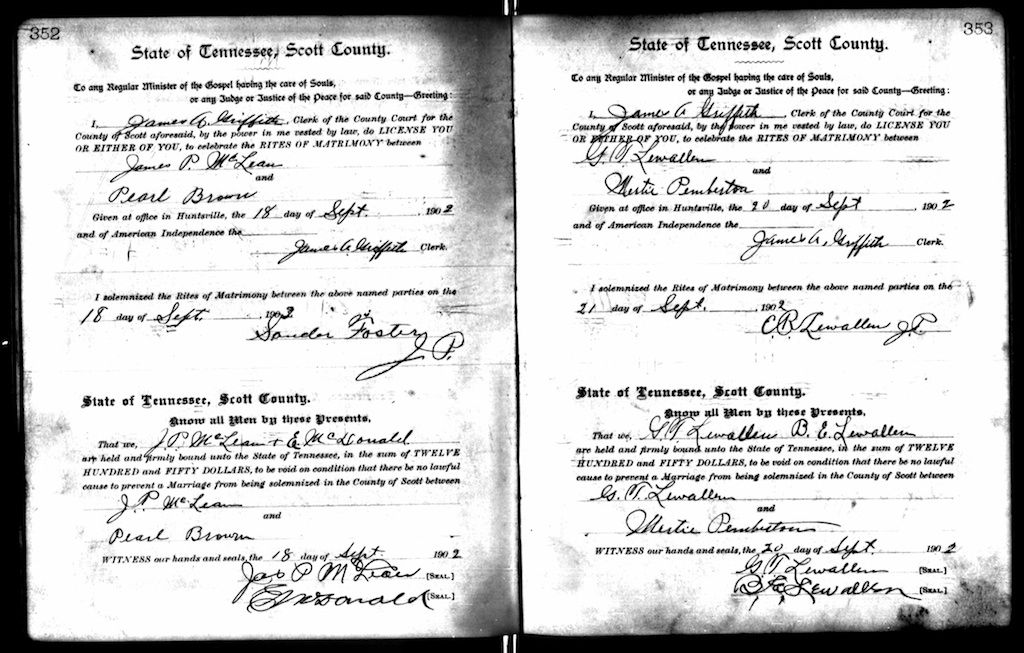 352
State of Tennessee, Scott County.
To any Regular Minister of the Gospel having the care of Souls,
or any Judge or Justice of the Peace for said County—Greeting:
I, James A. Griffith, Clerk of the County Court for the
County of Scott aforesaid, by the power in me vested by law, do LICENSE YOU
OR EITHER OF YOU, to celebrate the RITES OF MATRIMONY between
James P. McLean
and
Pearl Brown
Given at office in Huntsville, the 18 day of Sept. 1902
and of American Independence the
James A. Griffith Clerk.
I solemnized the Rites of Matrimony between the above named parties on the
18 day of Sept. 1902
Sandor Foster
J. P.
State of Tennessee, Scott County.
Know all Men by these Presents,
That we, J. P. McLean & E. McDonald
are held and firmly bound unto the State of Tennessee, in the sum of TWELVE
HUNDRED and FIFTY DOLLARS, to be void on condition that there be no lawful
cause to prevent a Marriage from being solemnized in the County of Scott between
J. P. McLean
and
Pearl Brown
WITNESS our hands and seals, the 18 day of Sept. 1902
Jas P McLean [SEAL.]
E McDonald [SEAL.]
353
State of Tennessee, Scott County.
To any Regular Minister of the Gospel having the care of Souls,
or any Judge or Justice of the Peace for said County—Greeting:
I, James A Griffith, Clerk of the County Court for the
County of Scott aforesaid, by the power in me vested by law, do LICENSE YOU
OR EITHER OF YOU, to celebrate the RITES OF MATRIMONY between
G. T. Lewallen
and
Mertie Pemberton
Given at office in Huntsville, the 20 day of Sept 1902
and of American Independence the
James A. Griffith Clerk.
I solemnized the Rites of Matrimony between the above named parties on the
21 day of Sept. 1902
C. R. Lewallen J. P.
State of Tennessee, Scott County.
Know all Men by these Presents,
That we, G. T. Lewallen B. E. Lewallen
are held and firmly bound unto the State of Tennessee, in the sum of TWELVE
HUNDRED and FIFTY DOLLARS, to be void on condition that there be no lawful
cause to prevent a Marriage from being solemnized in the County of Scott between
G. T. Lewallen
and
Mertie Pemberton
WITNESS our hands and seals, the 20 day of Sept. 1902
G T Lewallen [SEAL.]
B. E. Lewallen [SEAL.]